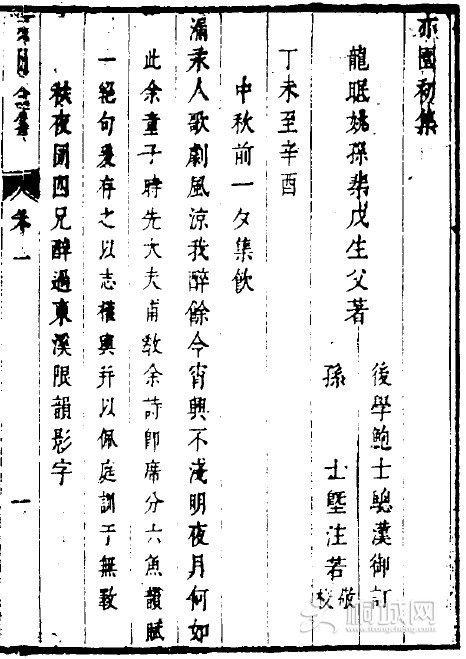 亦園初集
龍眠姚孫棐戊生父著
後學鮑士驄漢御訂
孫 士塈注若 敬校
丁未至辛酉
中秋前一夕集飲
漏永人歌劇風涼我醉餘今宵興不淺明夜月何如
此余童子時先大夫甫教余詩即席分六魚韻賦
一絕句爰存之以志權輿并以佩庭訓于無斁
秋夜同四兄醉過東溪限韻影字
亦園全集
卷一
一
桐城网